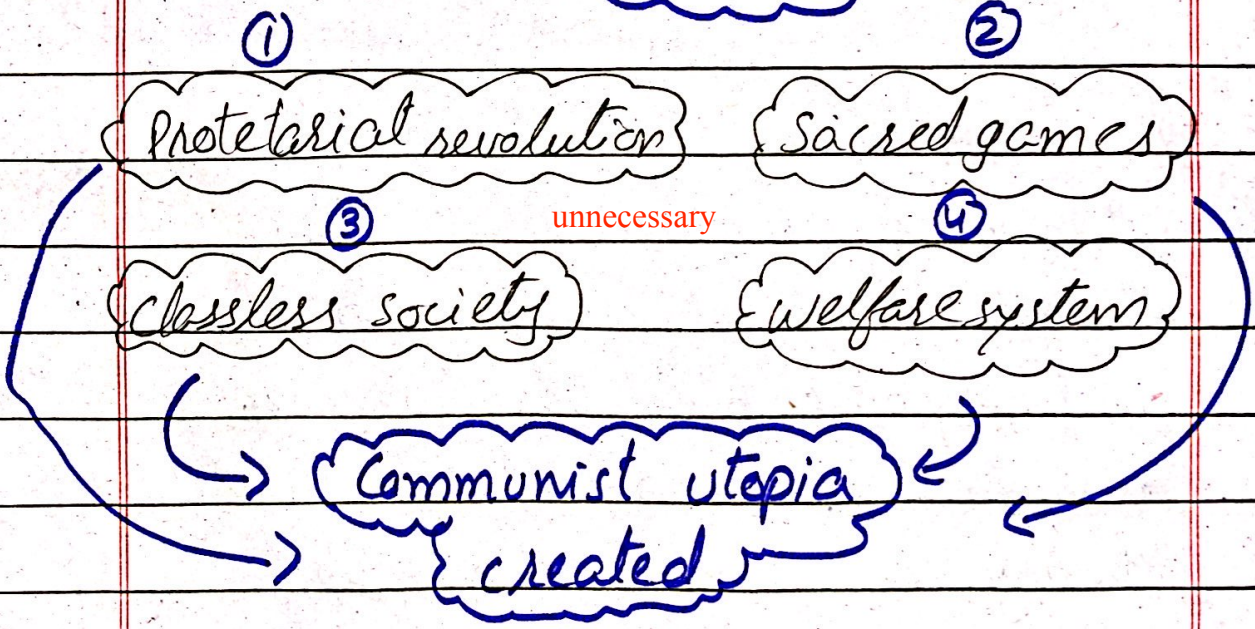 ① ②
Protetarial revolution Sacred games
unnecessary
③ ④
Classless society welfare system
Communist utopia
created